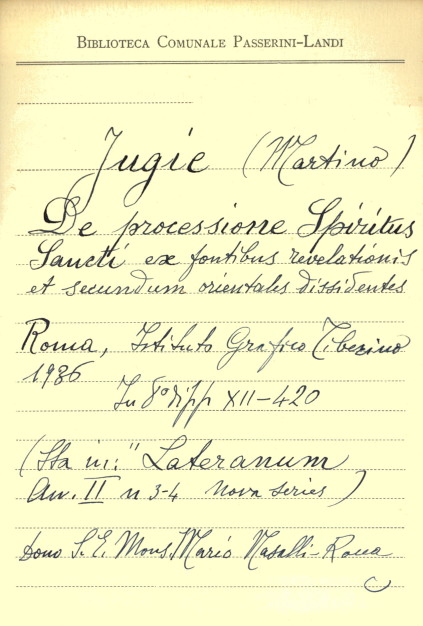 BIBLIOTECA COMUNALE PASSERINI-LANDI
Jugie (Martino)
De processione Spiritus
Sancti ex fontibus revelationis
et secundum orientales dissidentes
Roma, Istituto Grafico Tiberino
1936
In 8° di pp XII-420
(Sta in: " Lateranum
An. II n 3-4 Nova series)
Dono S. E. Mons. Mario Nasalli-Rocca